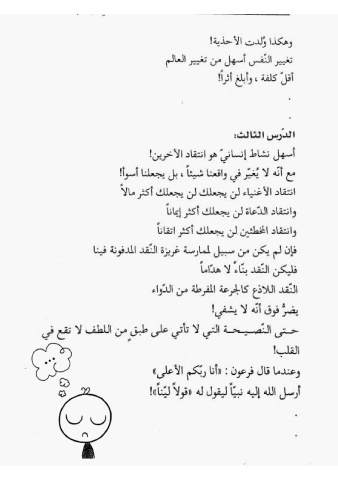 وهكذا وُلدت الأحذية!
تغيير النّفس أسهل من تغيير العالم
أقلّ كلفة ، وأبلغ أثراً!
.
.
الدّرس الثالث:
أسهل نشاط إنسانيّ هو انتقاد الآخرين!
مع أنّه لا يُغيّر في واقعنا شيئاً ، بل يجعلنا أسوأ!
انتقاد الأغنياء لن يجعلك لن يجعلك أكثر مالاً
وانتقاد الدّعاة لن يجعلك أكثر إيماناً
وانتقاد المخطئين لن يجعلك أكثر اتقاناً
فإن لم يكن من سبيل لممارسة غريزة النّقد المدفونة فينا
فليكن النّقد بنّاءً لا هدّاماً
النّقد اللاذع كالجرعة المفرطة من الدّواء
يضرُّ فوق أنّه لا يشفي!
حـتـى النّـصـيـحـة التي لا تأتي على طبقٍ من اللطف لا تقع في
القلب!
وعندما قال فرعون : «أنا ربّكم الأعلى»
أرسل الله إليه نبيّاً ليقول له «قولاً ليّناً»!
.
.